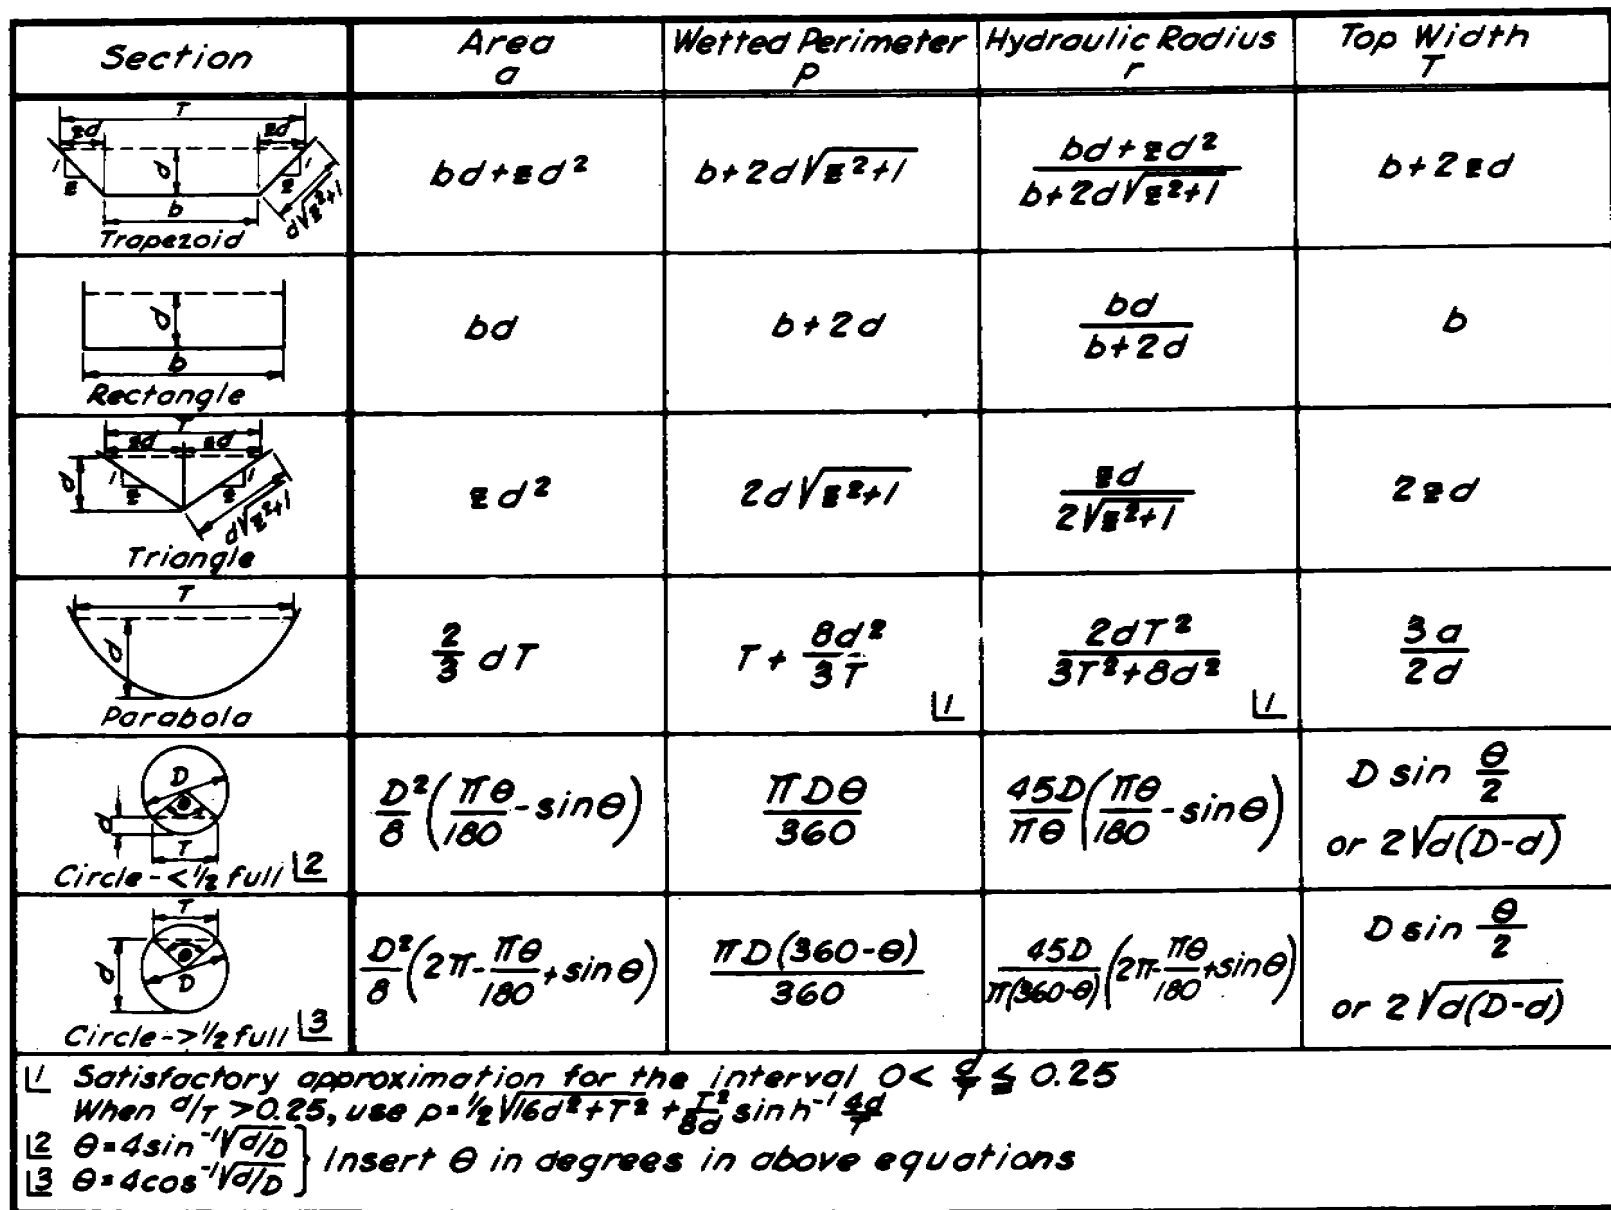 Section | Area a | Wetted Perimeter p | Hydraulic Radius r | Top Width T
T
zd zd
1 z d 1 z
b
d√z²+1
Trapezoid | bd+zd² | b+2d√z²+1 | (bd+zd²)/(b+2d√z²+1) | b+2zd
d
b
Rectangle | bd | b+2d | bd/(b+2d) | b
T
zd zd
d 1 z 1 z
d√z²+1
Triangle | zd² | 2d√z²+1 | zd/(2√z²+1) | 2zd
T
d
Parabola | 2/3 dT | T + 8d²/3T ⌊1 | 2dT²/(3T²+8d²) ⌊1 | 3a/2d
D
θ
d
T
Circle-<½ full ⌊2 | D²/8 (πθ/180 - sinθ) | πDθ/360 | 45D/πθ (πθ/180 - sinθ) | D sin θ/2 or 2√d(D-d)
T
θ
d
D
Circle->½ full ⌊3 | D²/8 (2π - πθ/180 + sinθ) | πD(360-θ)/360 | 45D/π(360-θ) (2π - πθ/180 + sinθ) | D sin θ/2 or 2√d(D-d)
⌊1 Satisfactory approximation for the interval 0 < d/T ≦ 0.25
When d/T > 0.25, use p = ½√16d²+T² + T²/8d sinh⁻¹ 4d/T
⌊2 θ = 4sin⁻¹√d/D
⌊3 θ = 4cos⁻¹√d/D } Insert θ in degrees in above equations